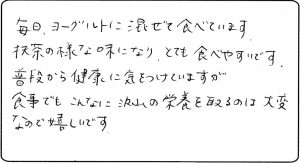 毎日、ヨーグルトに混ぜて食べています
抹茶の様な味になり、とても食べやすいです。
普段から健康に気をつけていますが
食事でもこんなに沢山の栄養を取るのは大変
なので嬉しいです